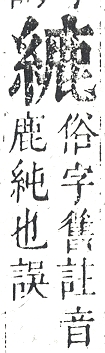 俗字舊註音
鹿純也誤